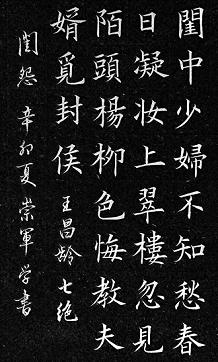 閨中少婦不知愁春
日凝妆上翠樓忽見
陌頭楊柳色悔教夫
婿覓封侯 王昌龄七绝
闺怨 辛卯夏 崇軍学書